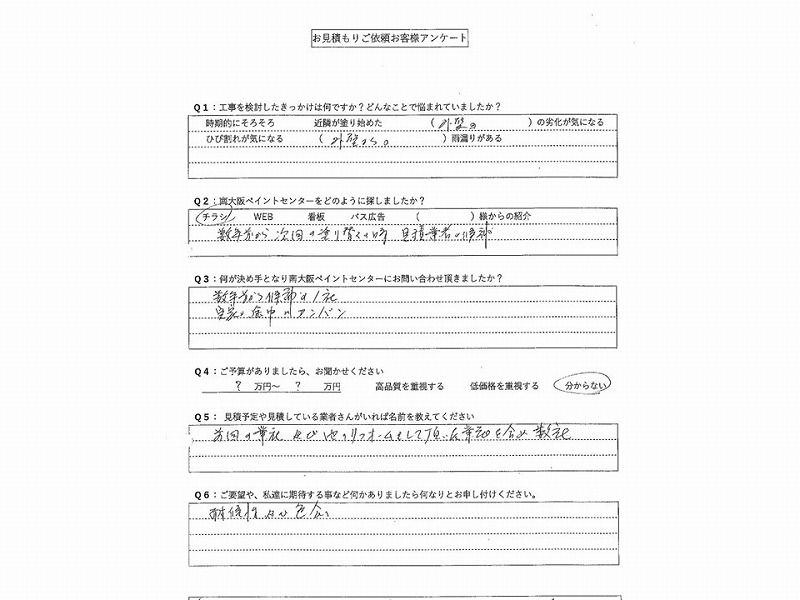 お見積もりご依頼お客様アンケート
Q1:工事を検討したきっかけは何ですか?どんなことで悩まれていましたか?
時期的にそろそろ 近隣が塗り始めた (外壁の )の劣化が気になる
ひび割れが気になる (外壁から。 )雨漏りがある
Q2:南大阪ペイントセンターをどのように探しましたか?
チラシ WEB 看板 バス広告 ( )様からの紹介
数年前から 次回の塗り替えの時 見積業者の候補
Q3:何が決め手となり南大阪ペイントセンターにお問い合わせ頂きましたか?
数年前から候補の1社
の途中の
Q4:ご予算がありましたら、お聞かせください
? 万円~ ? 万円 高品質を重視する 低価格を重視する 分からない
Q5: 見積予定や見積している業者さんがいれば名前を教えてください
前回の業社 及び他のリフォームをして頂いた業社を含め 数社
Q6:ご要望や、私達に期待する事など何かありましたら何なりとお申し付けください。
耐候性 及び 色合い